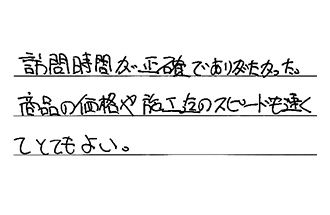 訪問時間が正確でありがたかった。
商品の価格や施工迄のスピードも速く
てとてもよい。